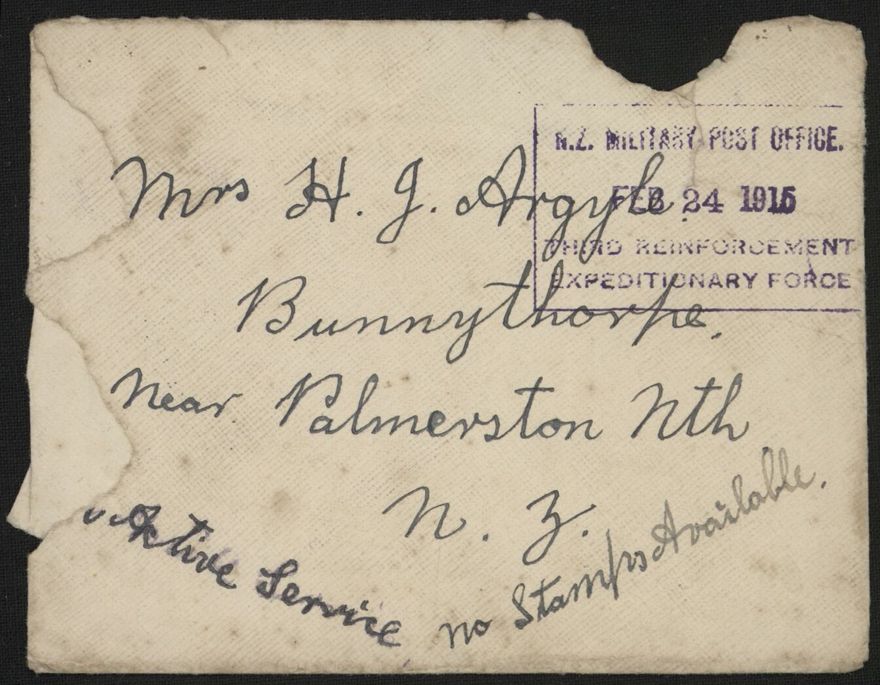 N.Z. MILITARY POST OFFICE.
FEB 24 1915
THIRD REINFORCEMENT
EXPEDITIONARY FORCE
Mrs H. J. Argyle
Bunnythorpe.
Near Palmerston Nth
N. Z.
Active Service
no Stamps Available.